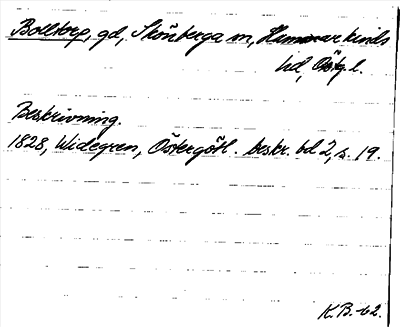 Bolltorp, gd, Skönberga sn, Hammarkinds
hd, Östg. l.
Beskrivning.
1828, Widegren, Östergötl. beskr. bd 2, s. 19.
K.B-62.